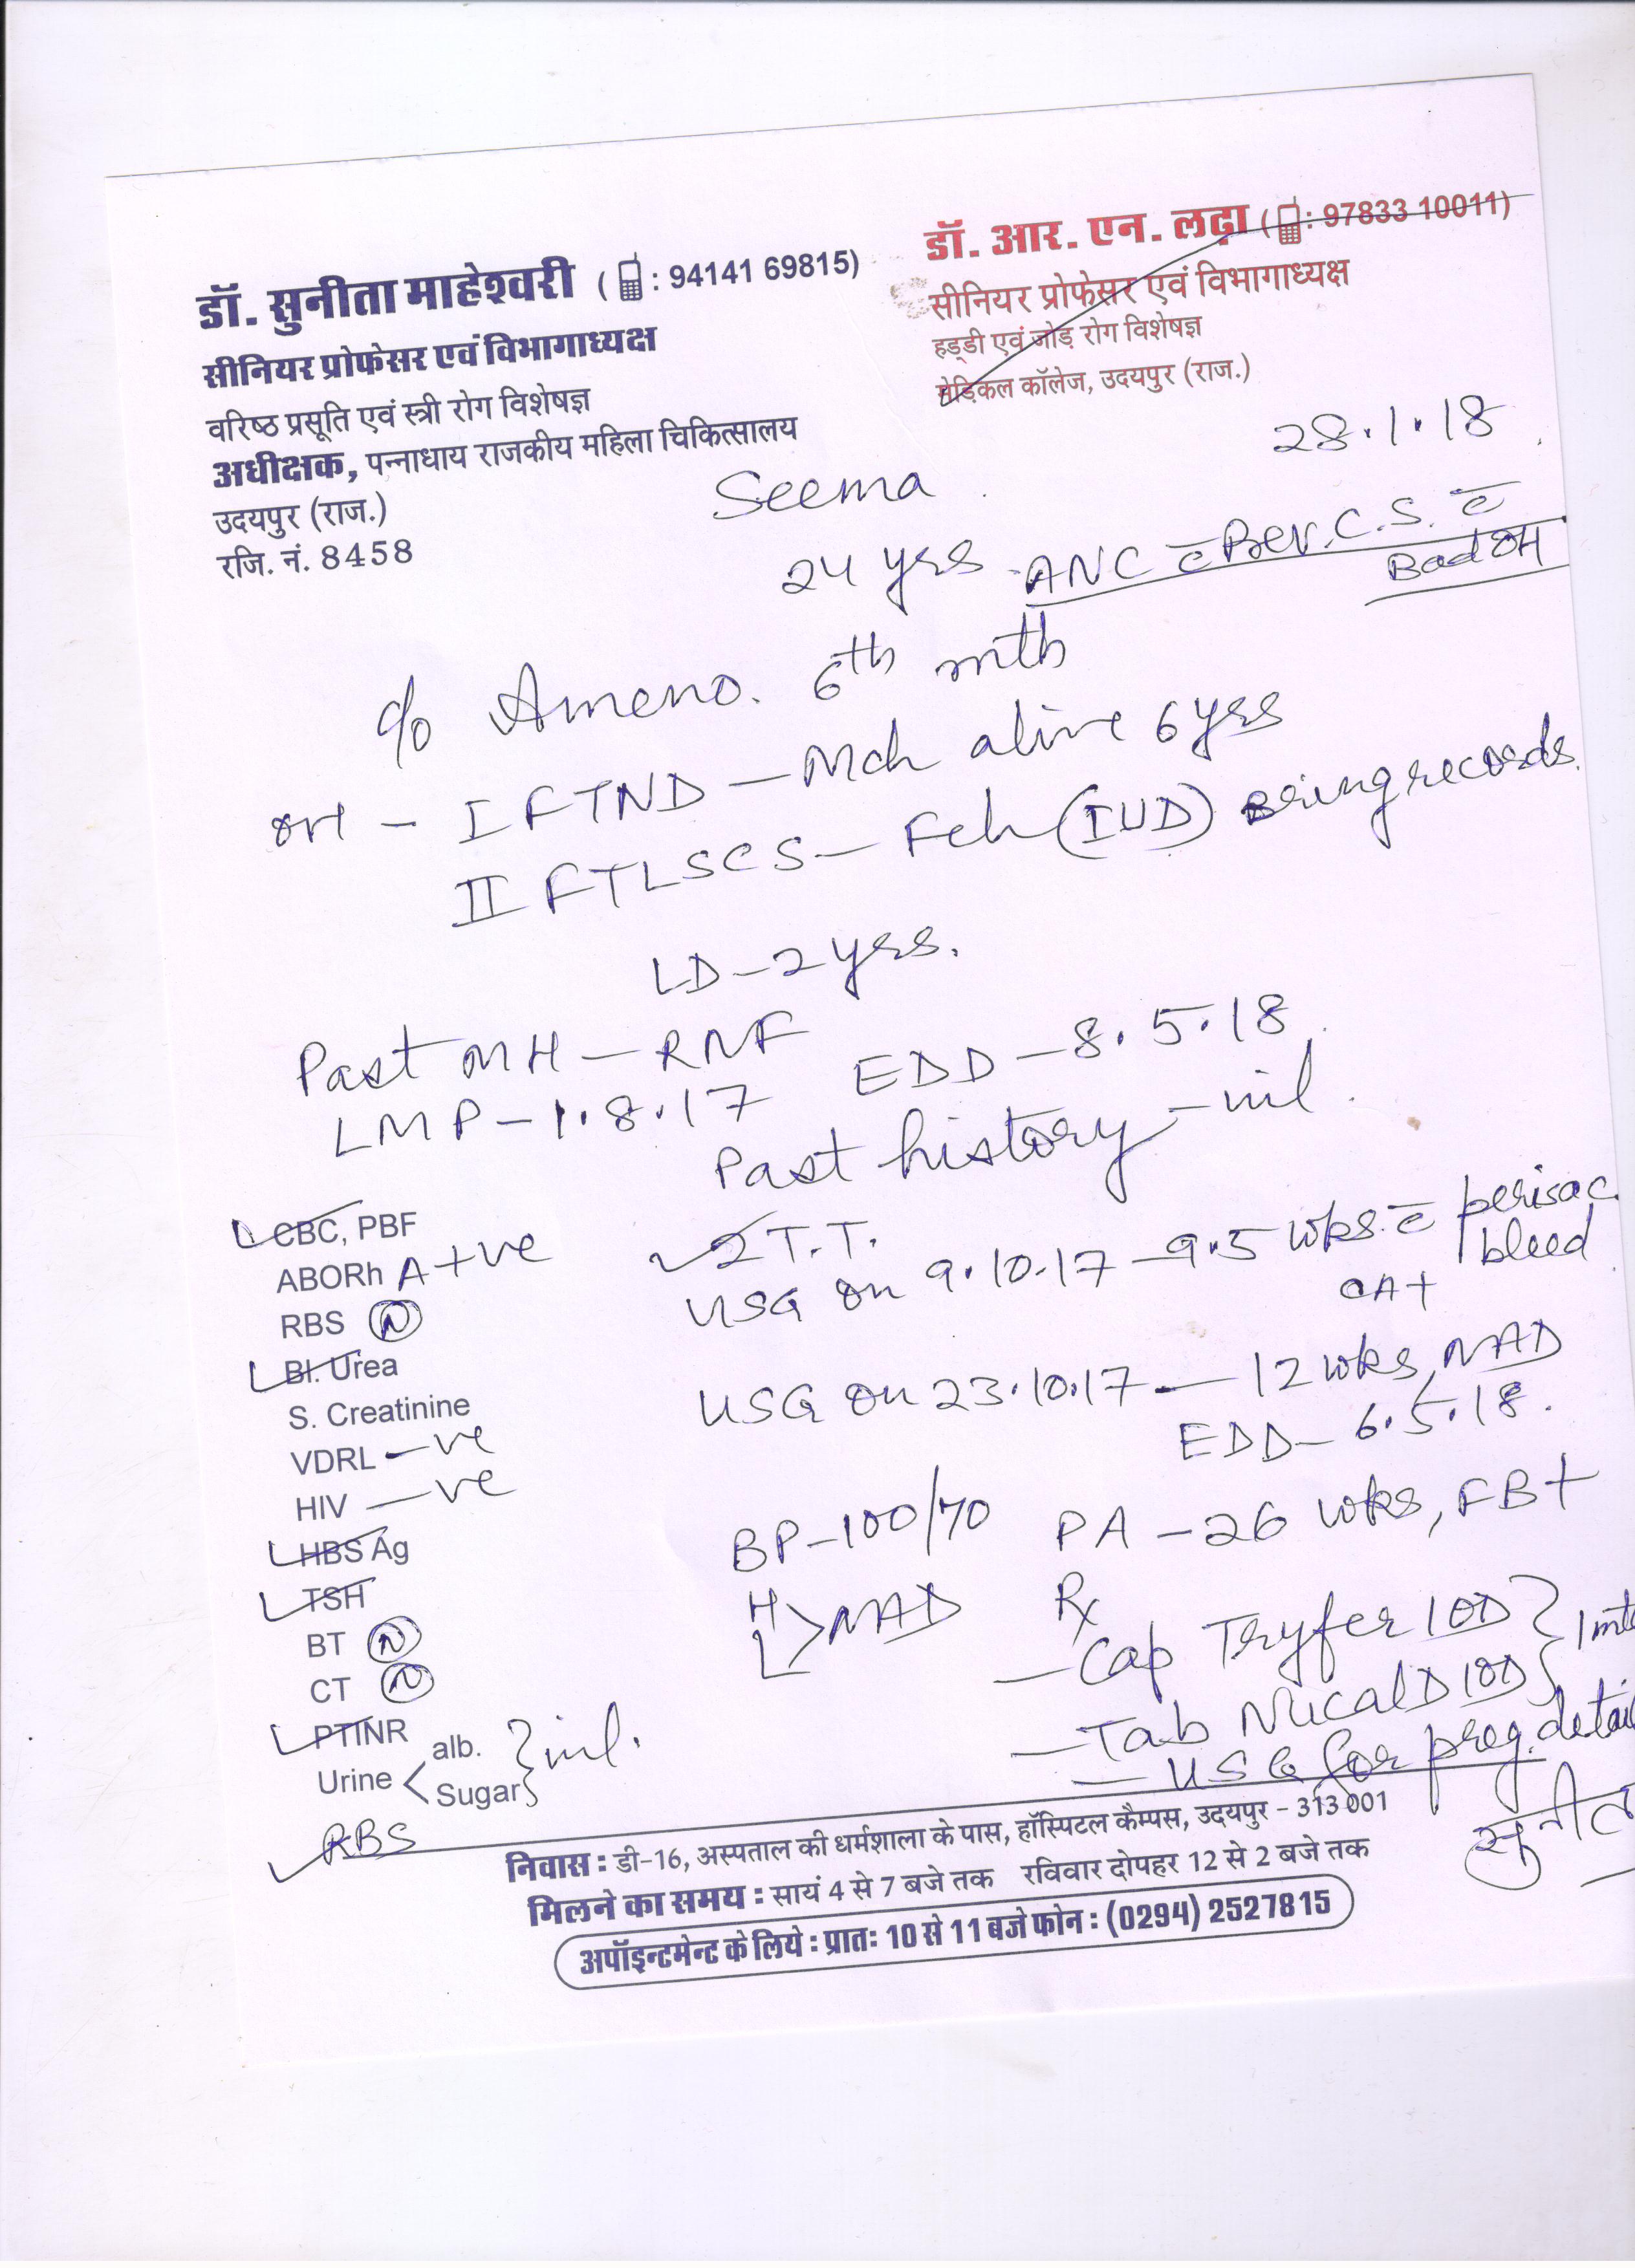 डॉ. सुनीता माहेश्वरी ( : 94141 69815)
सीनियर प्रोफेसर एवं विभागाध्यक्ष
वरिष्ठ प्रसूति एवं स्त्री रोग विशेषज्ञ
अधीक्षक, पन्नाधाय राजकीय महिला चिकित्सालय
उदयपुर (राज.)
रजि. नं. 8458
डॉ. आर. एन. लढ़ा ( : 97833 10011)
सीनियर प्रोफेसर एवं विभागाध्यक्ष
हड्डी एवं जोड़ रोग विशेषज्ञ
मेड़िकल कॉलेज, उदयपुर (राज.)
28.1.18
Seema
24 yrs. ANC c̄ Prev. C.S. c̄
Bad OH
c/o Ameno. 6th mth
OH - I FTND - Mch alive 6 yrs
II FTLSCS - Fch (IUD) Bring records.
LD - 2 yrs.
Past MH - RNF
LMP - 1.8.17 EDD - 8.5.18
Past history - nil.
2 T.T.
USG on 9.10.17 - 9.5 wks. c̄ perisac
bleed
CA+
USG on 23.10.17 - 12 wks, NAD
EDD - 6.5.18.
BP - 100/70 PA - 26 wks, FB+
H
L > NAD
Rx
- Cap Tryfer 1 OD } 1 mth
- Tab Nucal D 1 OD
- USG for preg. detail
सुनीता
CBC, PBF
ABORh A +ve
RBS (N)
Bl. Urea
S. Creatinine
VDRL -ve
HIV -ve
HBS Ag
TSH
BT (N)
CT (N)
PTINR
Urine < alb.
Sugar } nil.
RBS
निवास : डी-16, अस्पताल की धर्मशाला के पास, हॉस्पिटल कैम्पस, उदयपुर - 313 001
मिलने का समय : सायं 4 से 7 बजे तक रविवार दोपहर 12 से 2 बजे तक
अपॉइन्टमेन्ट के लिये : प्रातः 10 से 11 बजे फोन : (0294) 2527815